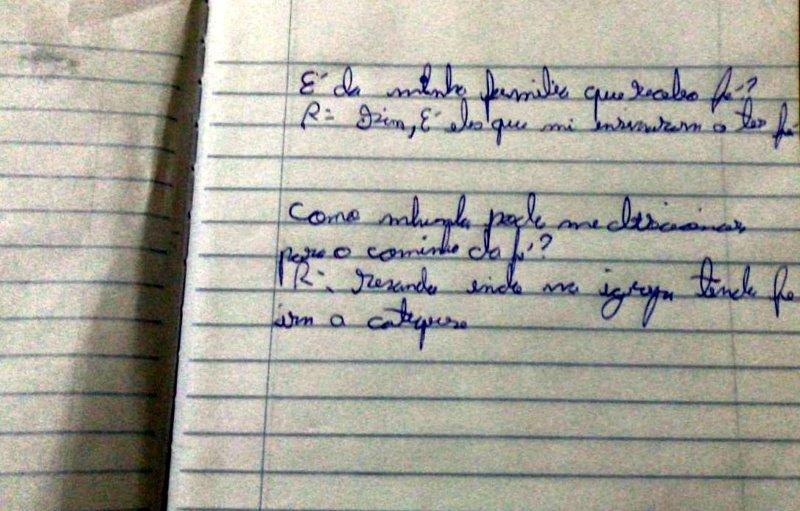 É da minha familia que recebo fé?
R= Sim, É eles que mi ensinaram a ter fé
Como pode me direcionar
para o caminho da fé?
R= rezando indo na igreja tendo fe
irm a catequese